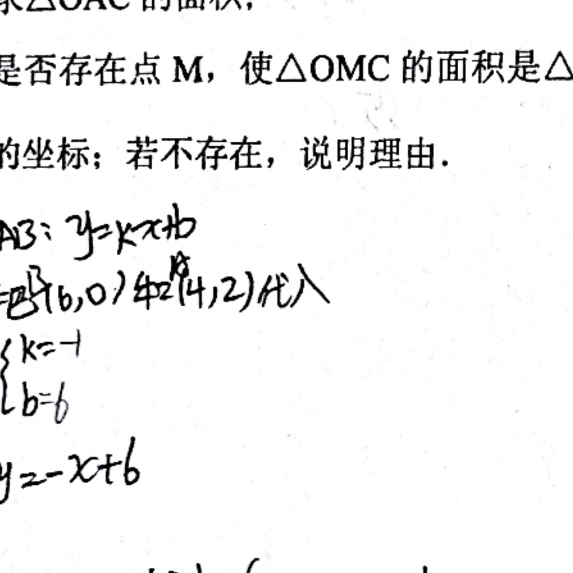 求△OAC 的面积;
是否存在点 M，使△OMC 的面积是△
的坐标；若不存在，说明理由．
AB: y=kx+b
B(6,0) A(4,2)代入
{k=-1
b=6
y=-x+6